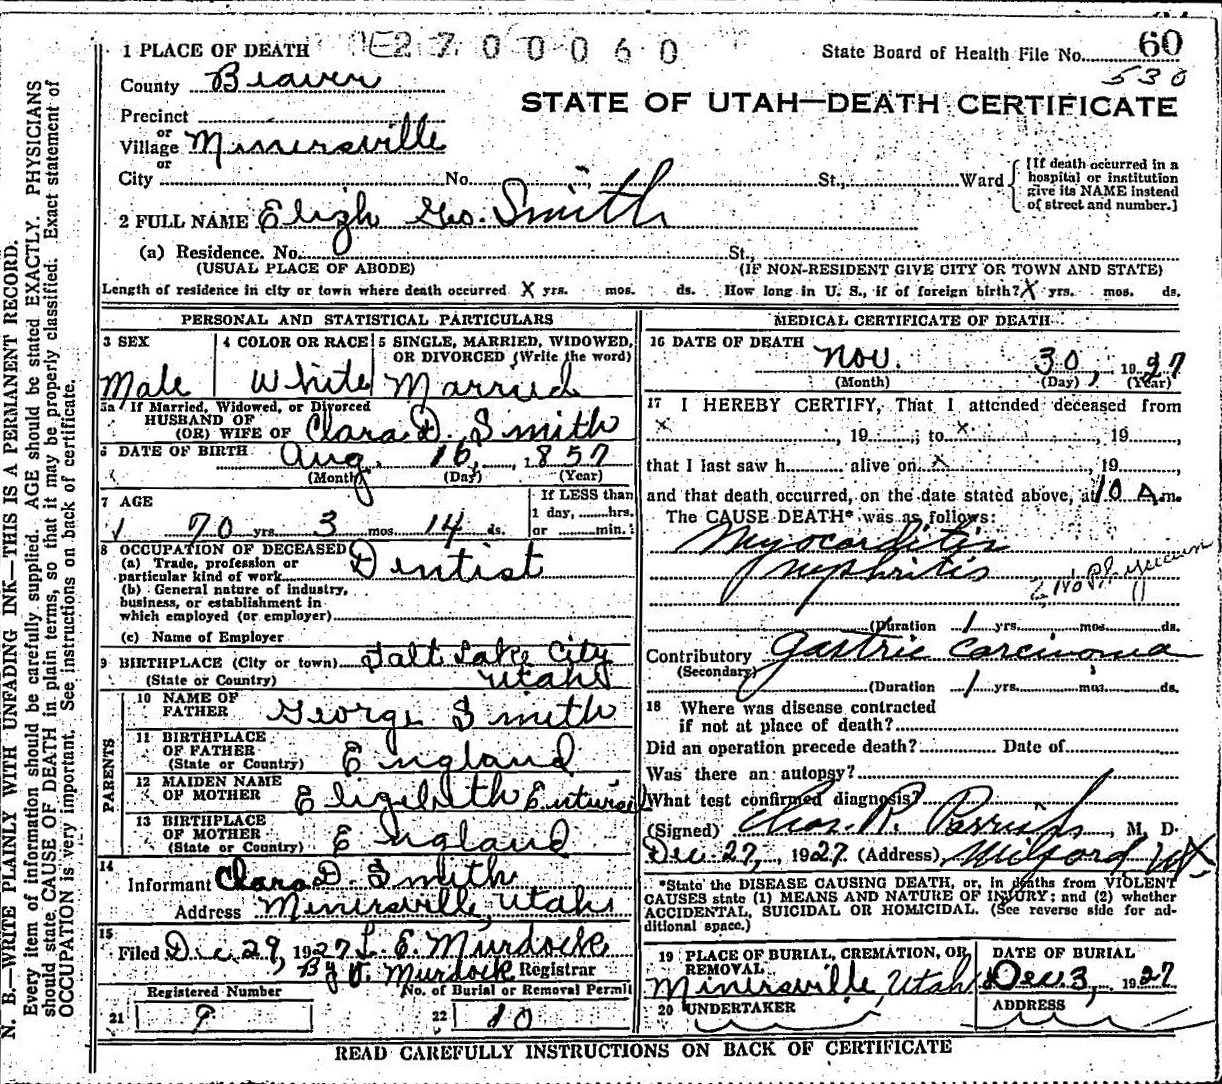 N. B.—WRITE PLAINLY WITH UNFADING INK—THIS IS A PERMANENT RECORD.
Every item of information should be carefully supplied. AGE should be stated EXACTLY. PHYSICIANS
should state CAUSE OF DEATH in plain terms, so that it may be properly classified. Exact statement of
OCCUPATION is very important. See instructions on back of certificate.
1 PLACE OF DEATH 2700060 State Board of Health File No. 60
530
County Beaver
STATE OF UTAH—DEATH CERTIFICATE
Precinct
or
Village Minersville
or
City No. St., Ward
[If death occurred in a
hospital or institution
give its NAME instead
of street and number.]
2 FULL NAME Elizh Geo. Smith
(a) Residence. No. St.,
(USUAL PLACE OF ABODE) (IF NON-RESIDENT GIVE CITY OR TOWN AND STATE)
Length of residence in city or town where death occurred X yrs. mos. ds. How long in U. S., if of foreign birth? X yrs. mos. ds.
PERSONAL AND STATISTICAL PARTICULARS
3 SEX 4 COLOR OR RACE 5 SINGLE, MARRIED, WIDOWED,
OR DIVORCED (Write the word)
Male White Married
5a If Married, Widowed, or Divorced
HUSBAND OF
(OR) WIFE OF Clara D. Smith
6 DATE OF BIRTH Aug. 16, 1857
(Month) (Day) (Year)
7 AGE If LESS than
1 day, hrs.
70 yrs. 3 mos. 14 ds. or min.
8 OCCUPATION OF DECEASED Dentist
(a) Trade, profession or
particular kind of work
(b) General nature of industry,
business, or establishment in
which employed (or employer)
(c) Name of Employer
9 BIRTHPLACE (City or town) Salt Lake City
(State or Country) Utah
PARENTS
10 NAME OF
FATHER George Smith
11 BIRTHPLACE
OF FATHER
(State or Country) England
12 MAIDEN NAME
OF MOTHER Elizibeth
13 BIRTHPLACE
OF MOTHER
(State or Country) England
14
Informant Clara D. Smith
Address Minersville, Utah
15
Filed Dec. 29, 1927 L. E. Murdock
By V. Murdock Registrar
Registered Number No. of Burial or Removal Permit
21 9 22 10
MEDICAL CERTIFICATE OF DEATH
16 DATE OF DEATH
Nov. 30, 1927
(Month) (Day) (Year)
17 I HEREBY CERTIFY, That I attended deceased from
X, 19 ; to X, 19 ,
that I last saw h alive on X, 19 ,
and that death occurred, on the date stated above, at 10 A m.
The CAUSE DEATH* was as follows:
Myocarditis
nephritis
No physician
(Duration 1 yrs. mos. ds.
Contributory Gastric Carcinoma
(Secondary)
(Duration 1 yrs. mos. ds.
18 Where was disease contracted
if not at place of death?
Did an operation precede death? Date of
Was there an autopsy?
What test confirmed diagnosis?
(Signed) Chas. R. Parrish, M. D.
Dec. 27, 1927 (Address) Milford, Ut
*State the DISEASE CAUSING DEATH, or, in deaths from VIOLENT
CAUSES state (1) MEANS AND NATURE OF INJURY; and (2) whether
ACCIDENTAL, SUICIDAL OR HOMICIDAL. (See reverse side for ad-
ditional space.)
19 PLACE OF BURIAL, CREMATION, OR
REMOVAL
Minersville, Utah
DATE OF BURIAL
Dec. 3, 1927
20 UNDERTAKER ADDRESS
READ CAREFULLY INSTRUCTIONS ON BACK OF CERTIFICATE